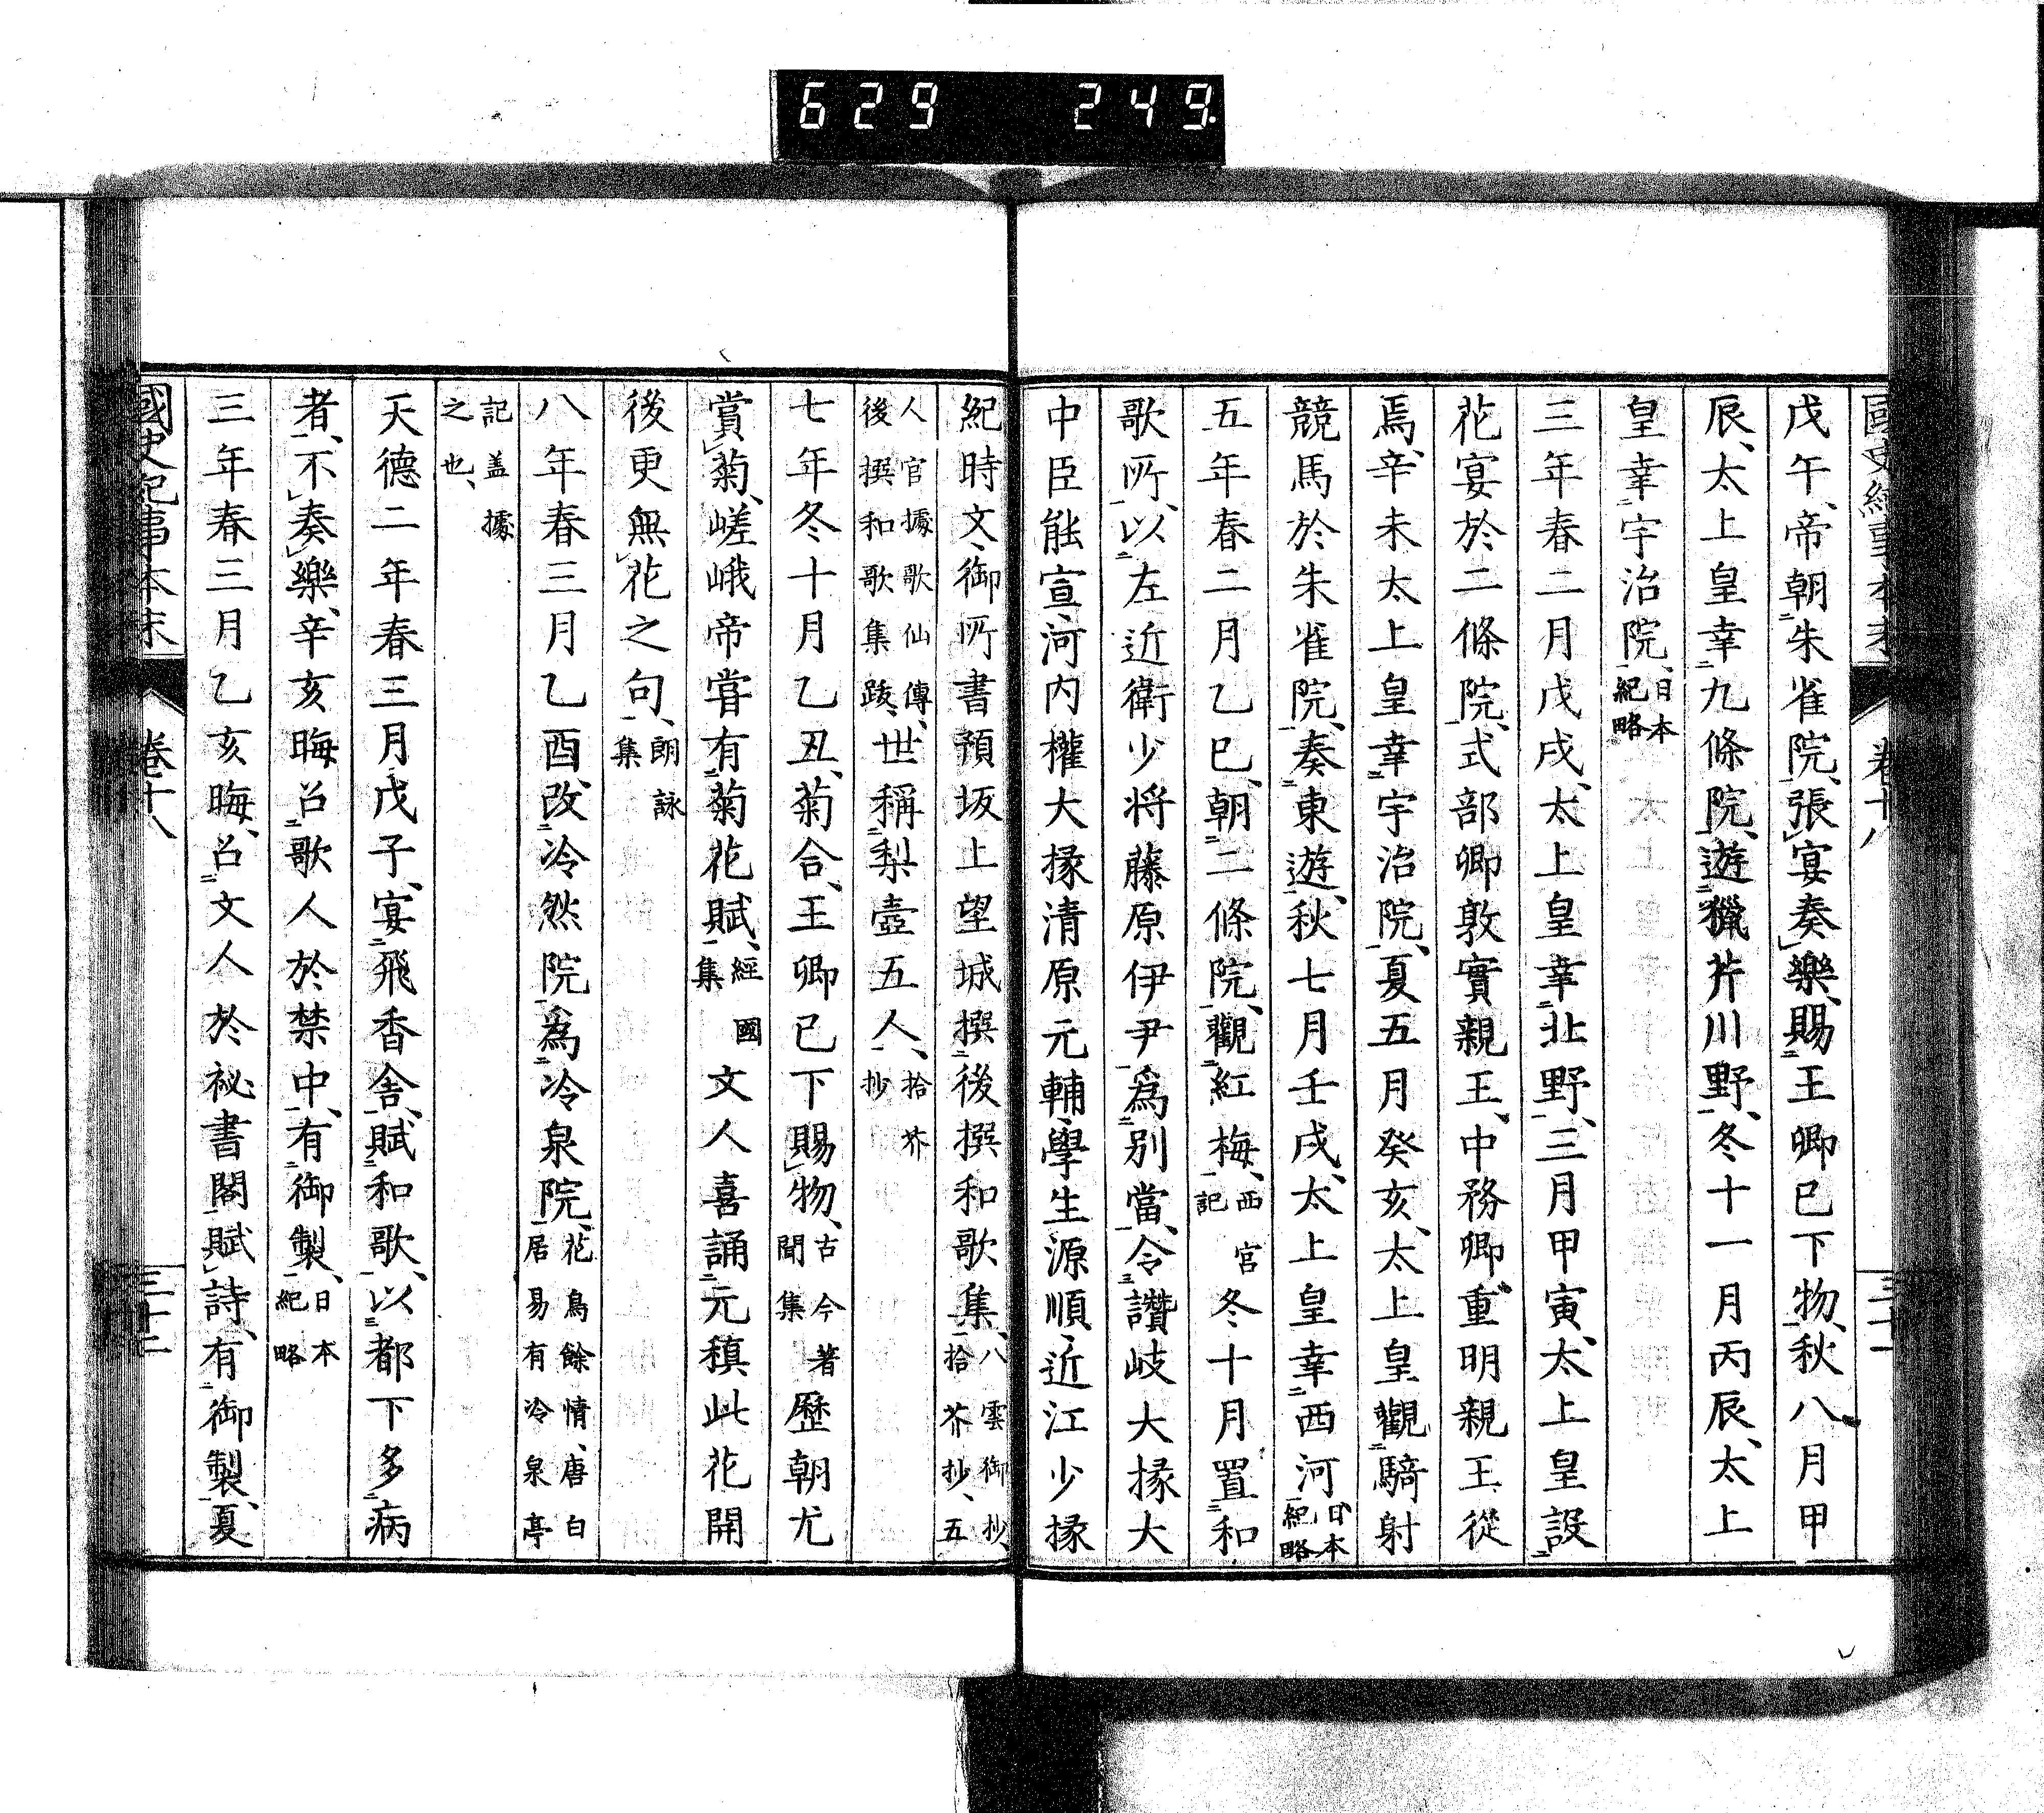 629 249
國史紀事本末 卷十八 三十一
戊午、帝朝朱雀院、張宴奏樂、賜王卿已下物、秋八月甲
辰、太上皇幸九條院、遊獵芹川野、冬十一月丙辰、太上
皇幸宇治院、日本紀略
三年春二月戊戌、太上皇幸北野、三月甲寅、太上皇設
花宴於二條院、式部卿敦實親王、中務卿重明親王從
焉、辛未太上皇幸宇治院、夏五月癸亥、太上皇觀騎射
競馬於朱雀院、奏東遊、秋七月壬戌、太上皇幸西河、日本紀略
五年春二月乙巳、朝二條院、觀紅梅、西宮記 冬十月置和
歌所、以左近衛少将藤原伊尹為別當、令讚岐大掾大
中臣能宣、河内權大掾清原元輔、學生源順、近江少掾
紀時文、御所書預坂上望城撰後撰和歌集、八雲御抄、拾芥抄、五
人官據歌仙傳、後撰和歌集跋、世稱梨壺五人、拾芥抄
七年冬十月乙丑、菊合、王卿已下賜物、古今著聞集 歷朝尤
賞菊、嵯峨帝甞有菊花賦、經國集 文人喜誦元稹此花開
後更無花之句、朗詠集
八年春三月乙酉、改冷然院為冷泉院、花鳥餘情、唐白居易有冷泉亭
記盖據之也、
天德二年春三月戊子、宴飛香舎、賦和歌、以都下多病
者、不奏樂、辛亥晦召歌人於禁中、有御製、日本紀略
三年春三月乙亥晦、召文人於祕書閣賦詩、有御製、夏
國史紀事本末 卷十八 三十二